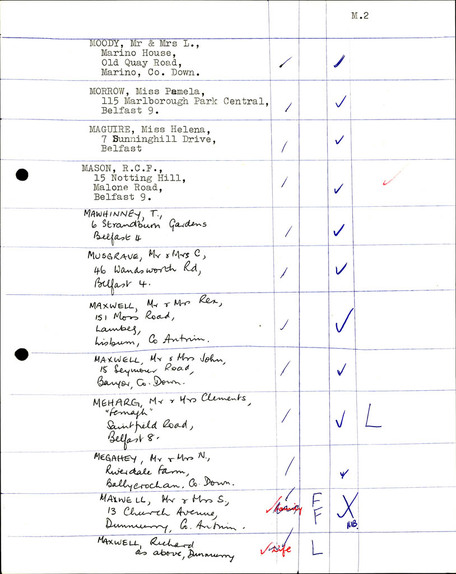 M.2
MOODY, Mr & Mrs L.,
Marino House,
Old Quay Road,
Marino, Co. Down.
MORROW, Miss Pamela,
115 Marlborough Park Central,
Belfast 9.
MAGUIRE, Miss Helena,
7 Sunninghill Drive,
Belfast
MASON, R.C.F.,
15 Notting Hill,
Malone Road,
Belfast 9.
MAWHINNEY, T.,
6 Strandburn Gardens
Belfast 4
MUSGRAVE, Mr & Mrs C,
46 Wandsworth Rd,
Belfast 4.
MAXWELL, Mr & Mrs Rex,
151 Moss Road,
Lambeg,
Lisburn, Co Antrim.
MAXWELL, Mr & Mrs John,
15 Seymour Road,
Bangor, Co. Down.
MEHARG, Mr & Mrs Clements,
"Fernagh"
Saintfield Road, L
Belfast 8.
MEGAHEY, Mr & Mrs N,
Riverdale Farm,
Ballycrochan. Co Down.
MAXWELL, Mr & Mrs S, F
13 Church Avenue, F
Dunmurry, Co. Antrim. NB.
MAXWELL, Richard
as above, Dunmurry wife L